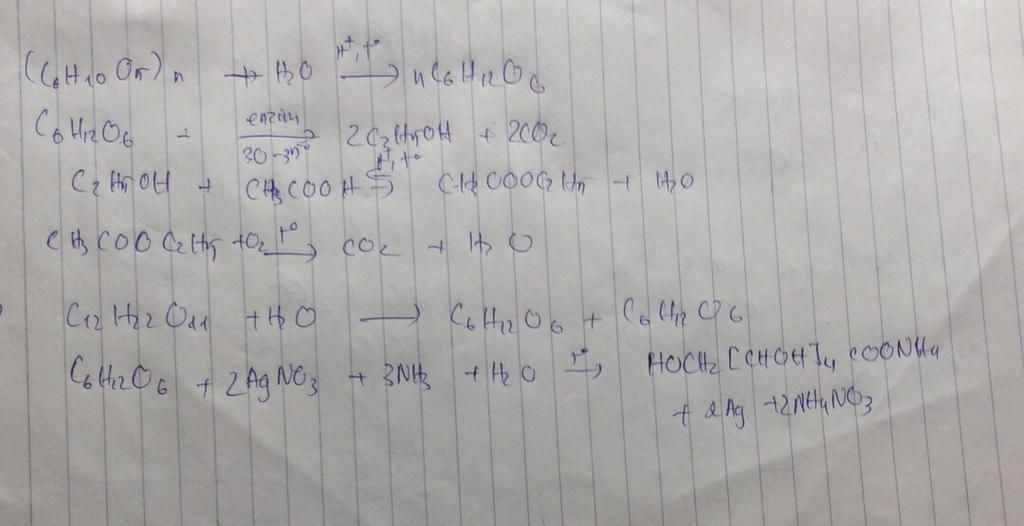 (C6H10O5)n + H2O —H+, t°→ nC6H12O6
C6H12O6 —enzim 30-35°→ 2C2H5OH + 2CO2
C2H5OH + CH3COOH ⇌ H+, t° CH3COOC2H5 + H2O
CH3COOC2H5 + O2 —t°→ CO2 + H2O
C12H22O11 + H2O → C6H12O6 + C6H12O6
C6H12O6 + 2AgNO3 + 3NH3 + H2O —t°→ HOCH2[CHOH]4COONH4
+ 2Ag + 2NH4NO3